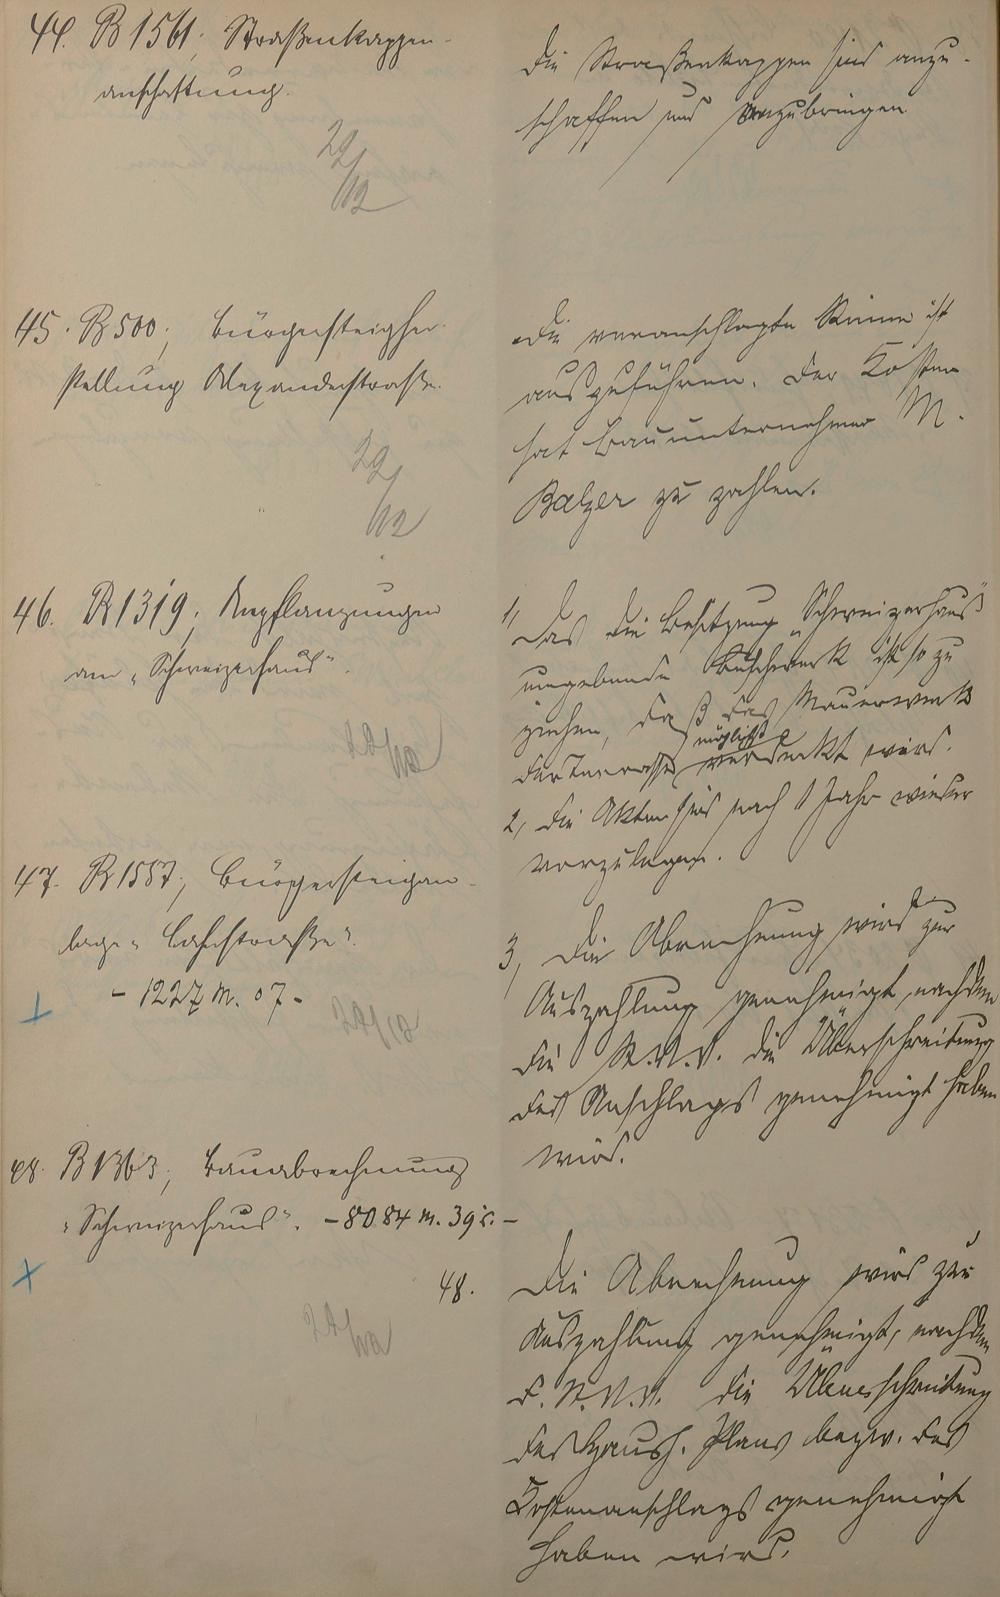 44. B 1561; Straßenkappen-
anschaffung.
29/12
Die Straßenkappen sind anzu-
schaffen und anzubringen
45. B 500; Bürgersteigher-
stellung Alexanderstraße.
29/12
Die veranschlagte Rinne ist
auszuführen. Der Kosten
hat Bauunternehmer M.
Balzer zu zahlen.
46. B 1319; Anpflanzungen
am „Schweizerhaus".
29/12
1, Das die Besitzung „Schweizerhaus"
umgebende Buschwerk ist so zu
ziehen, daß das Mauerwerk
der Terrasse möglichst verdeckt wird.
2, Die Akten sind nach 1 Jahr wieder
vorzulegen.
47. B 1557; Bürgersteigan-
lage „Lahnstraße".
- 1227 M. 07 -
29/12
3, Die Abrechnung wird zur
Auszahlung genehmigt, nachdem
die St.V.V. die Überschreitung
des Anschlags genehmigt haben
wird.
48. B 1363; Bauabrechnung
„Schweizerhaus". - 8084 M. 39 -
29/12
48. Die Abrechnung wird zur
Auszahlung genehmigt, nachdem
d. St.V.V. die Überschreitung
des Haush. Plans bezw. des
Kostenanschlags genehmigt
haben wird.